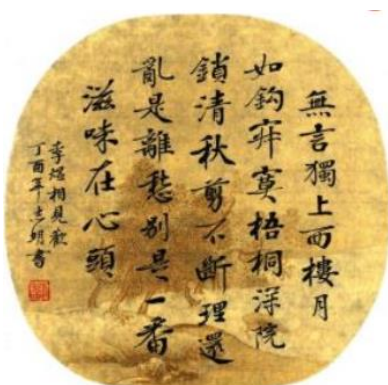 無言獨上西樓月
如鈎寂寞梧桐深院
鎖清秋剪不斷理還
亂是離愁別是一番
滋味在心頭
李煜相見歡
丁酉年志明書